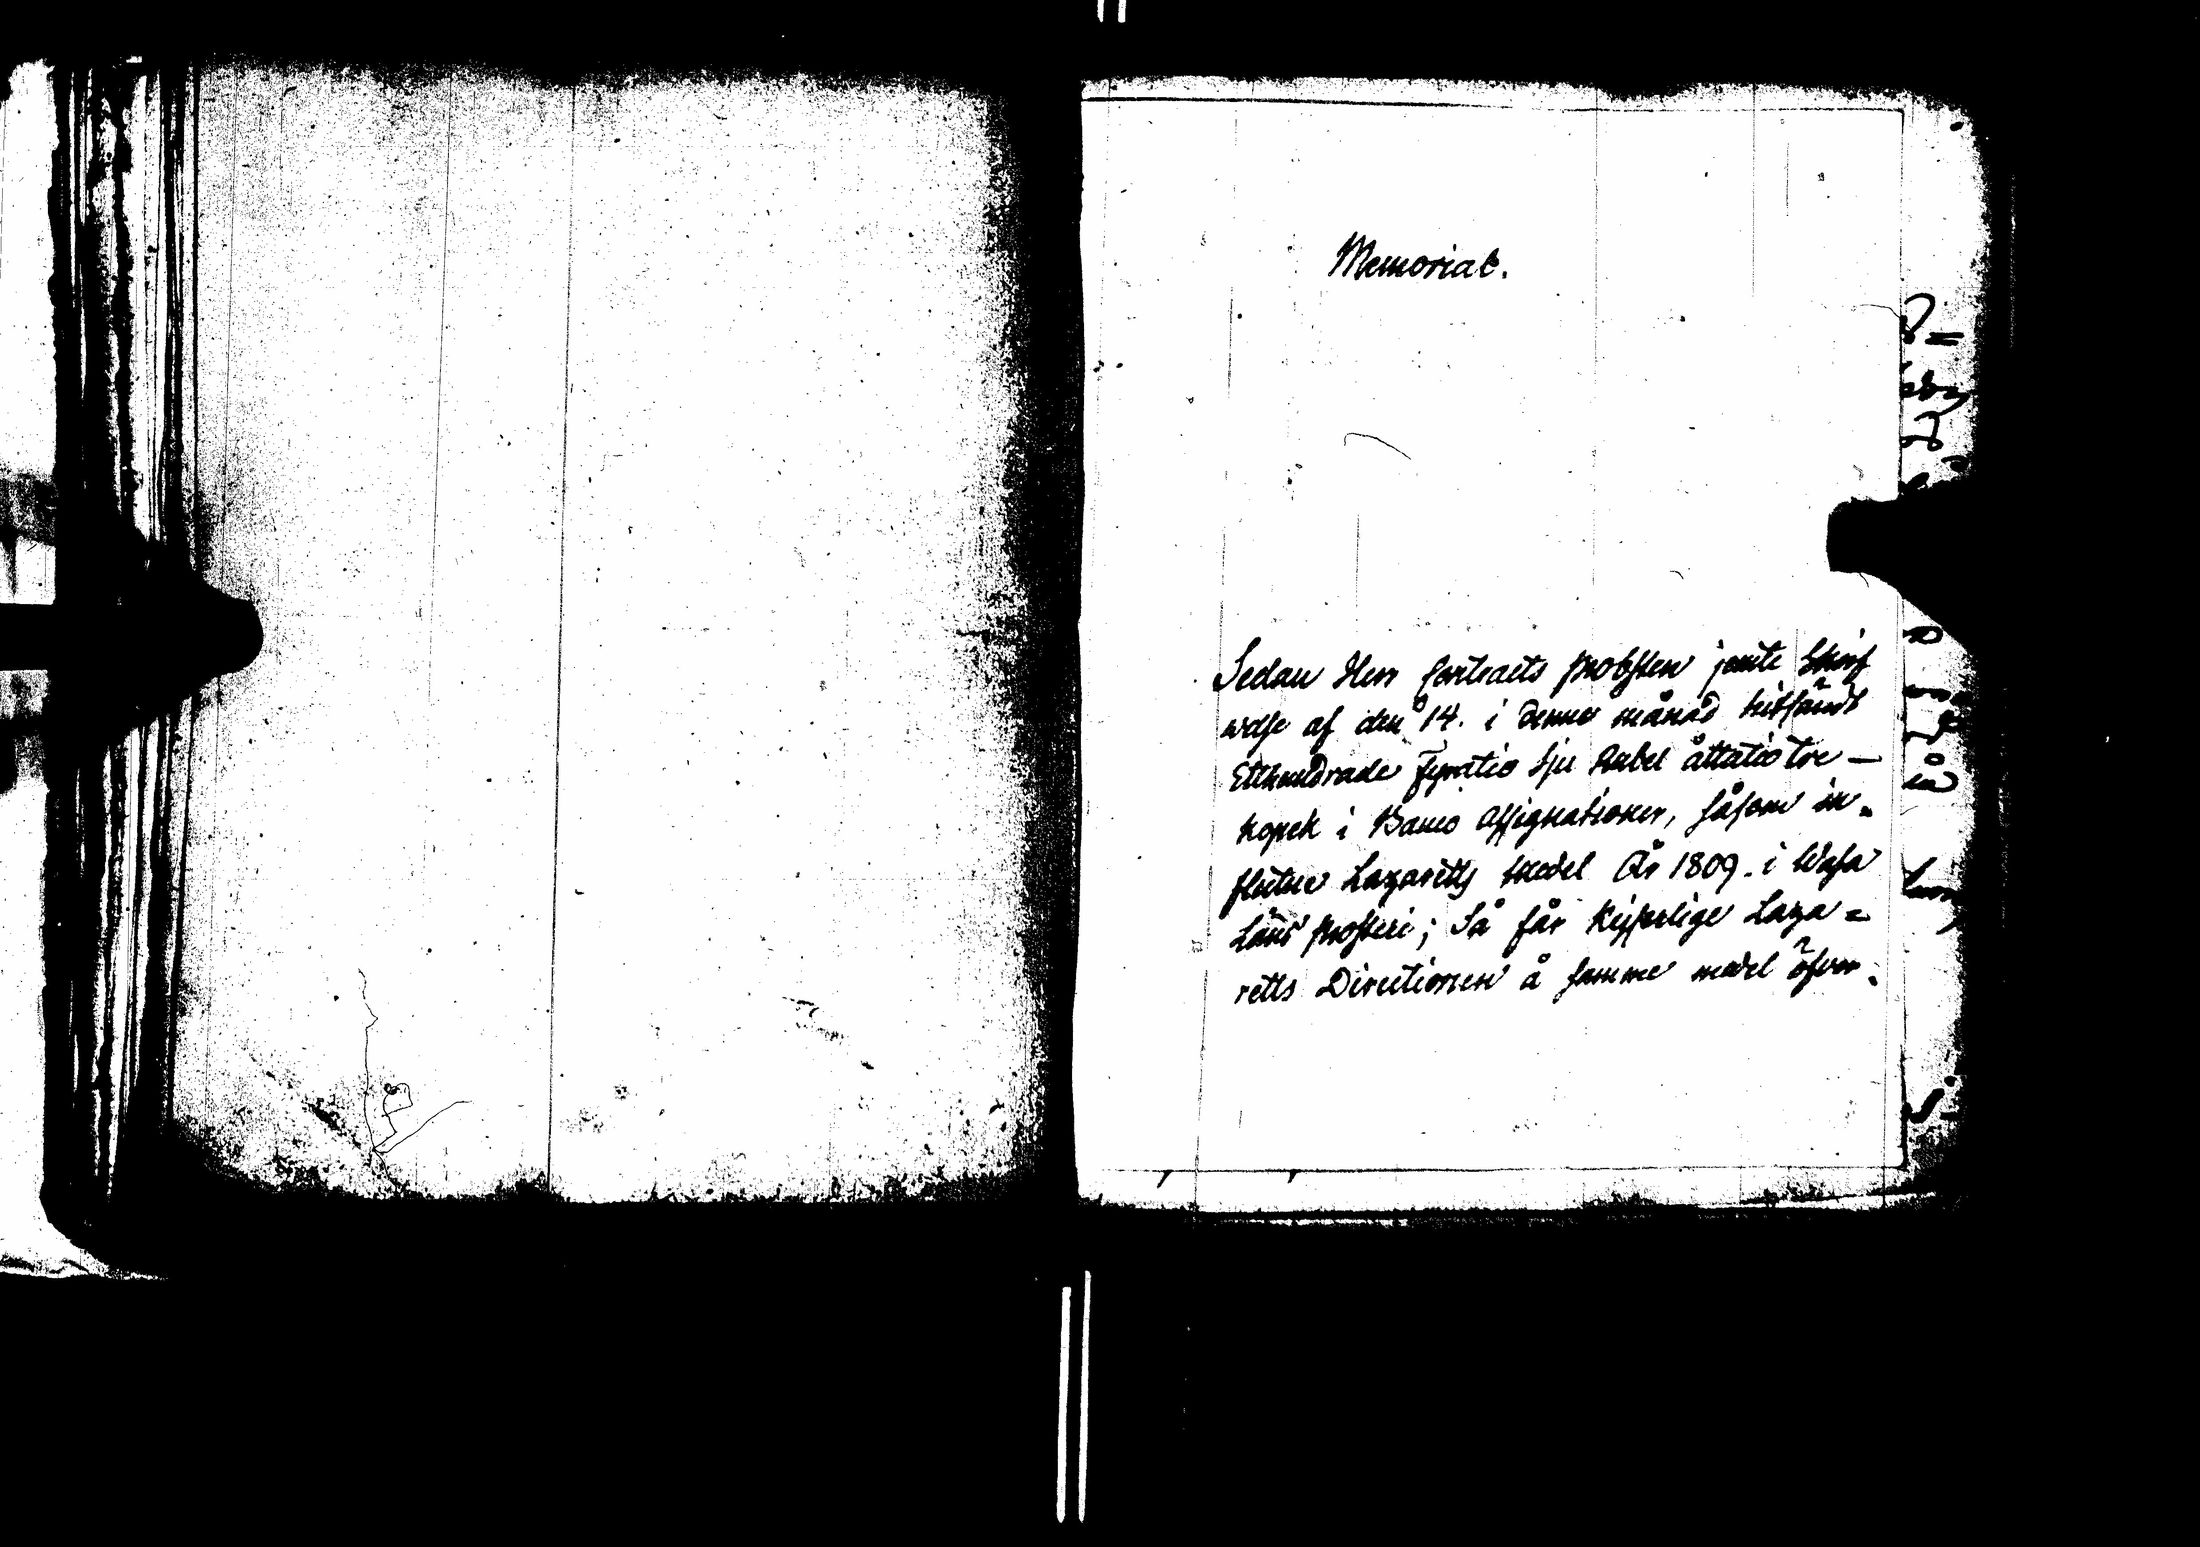 Memorial.
Sedan Herr Contracts Probsten jemte Skrif
welse af den 14. i denne månad hitsändt
Etthundrade fyratio sju Rubel åttatio tre —
Kopek i Banco Assignationer, såsom in-
flutne Lazaretts medel År 1809. i Wasa
Läns Prosteri; Så får Kejserlige Laza=
retts Directionen å samme medel öfver-